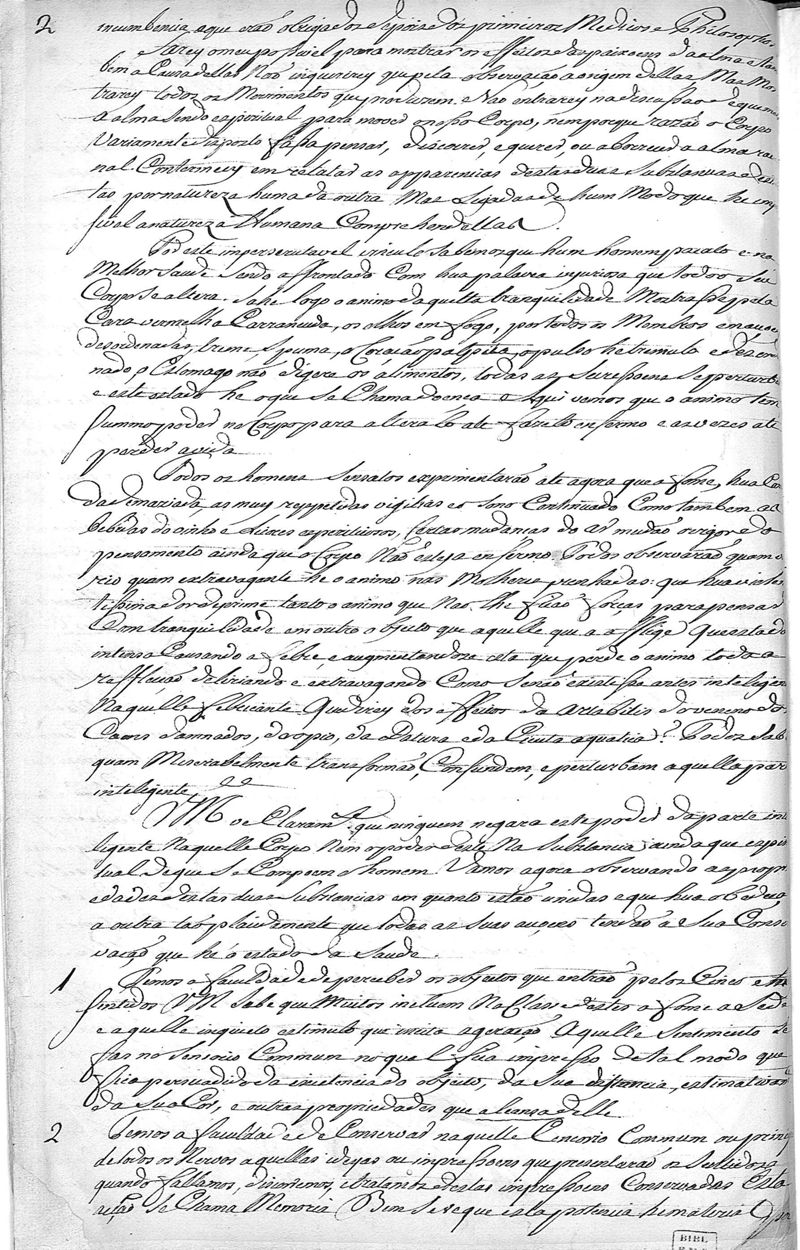 2
incumbencia, aque erão obrigados depois e dos primeiros Medicos e Philosopho
Farey o meu possivel para mostrar os effeitos das paixoens da alma e tam
bem a Cauza dellas Não inquirirey que pela observação a origem dellas Mas Mos
trarey todos os Movimentos que produzem. e Não entrarey na discussão de que mo
A alma sendo espiritual para mover o nosso Corpo, nem porque razão o Corpo
Variamente disposto faça pensar, discorrer, e querer ou aborrecer a alma ra
nal Contermeey em relatar as apparencias destas duas Substancias
tas por natureza huma da outra Mas Ligadas de hum Modo que he im
sivel a natureza Humana Comprehendellas.
Por este imperscrutavel vinculo Sabemos que hum homem pacato e na
Melhor Saude Sendo affrontado Com hua palavra injuriosa que todo o seu
Corpo Se altera. Sahe logo o animo daquella tranquilidade Mostrasse pela
Cara vermelha Carrancuda, os olhos em fogo, por todos os Membros em acço
desordenadas, treme, Spuma, o Coração palpita, o pulso he tremulo e dezor
nado, o Estomago não digere os alimentos, todas as Secressoens Se perturbã
e este estado he o que Se Chama doença e Aqui vemos que o animo tem
Summo poder no Corpo para alteralo ate fazello enfermo e as vezes ate
perder a vida
Todos os homens Sensatos exprimentarão ate agora que a fome, hua Co
da demaziada, as muy reppetidas vigilias e o Sono Continuado Como tambem as
bebidas do vinho e Licores espirituosos, Certas mudanças do Ar mudão o vigor do
pensamento ainda que o Corpo Não esteja enfermo. Todos observarão quam v
rio quam extravagante he o animo nas Molheres prenhadas: que hua inten
tissima dor deprime tanto o animo que Nao lhe ficão forças para pensar
Com tranquilidade em outro objeto que aquelle que a afflige Que esta do
intensa Cauzando a febre e augmentandoze esta que perde o animo toda a
reffleção deliriando e extravagando Como Se não existisse antes inteligen
Naquelle febricitante. Que direy dos effeitos da Atrabilis do veneno dos
Caens damnados, do opio, da Datura e da Cicuta aquatica? Todos Sab
quam Miserabelmente transformão, Confundem, e perturbam aquella par
inteligente.
VM ve Claramte que ninguem negara este poder da parte int
ligente Naquelle Corpo Nem o poder deste Na Substancia ainda que espi
tual de que Se Compoem o homem. Vamos agora observando as propri
edades destas duas Substancias em quanto estão unidas e que hua obedeça
a outra tão plainamente que todas as Suas acçoes tendão a Sua Conse
vação que he o estado da Saude.
1 Temos a faculdade de perceber os objectos que entrão pelos Cinco
Sintidos VM. Sabe que Muitos incluem Na Classe destes a fome a Sede
e aquelle inquieto estimulo que incita a geração Aquelle Sentimento Se
faz no Sensorio Commum no qual fica impresso de tal modo que
fica persuadido da existencia do objeto, da Sua distancia,
da Sua Cor, e outras propriedades que alcansa delle
2 Temos a faculdade de Conservar naquelle Censorio Commum ou princi
de todos os Nervos aquellas ideyas ou impressoens que presentarão os Sentidos
quando fallamos, discorremos, e tratamos destas impressoens Conservadas Esta
ação Se Chama Memoria Bem Se ve que esta potencia he material
BIBL